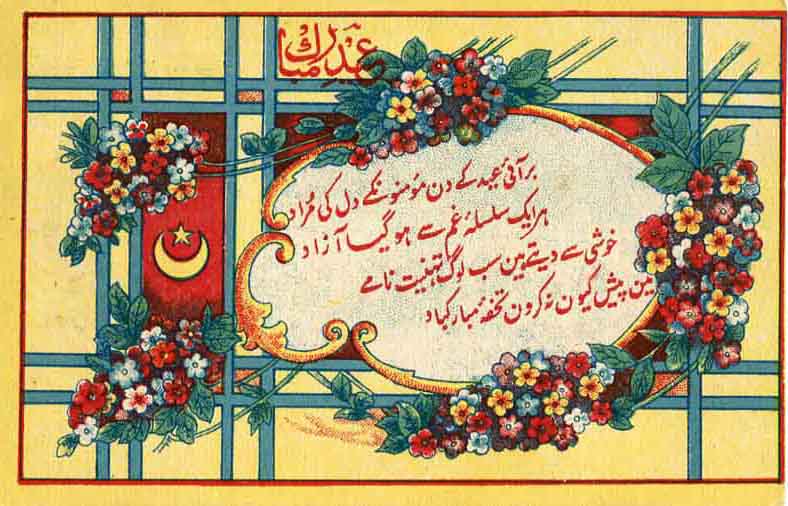 عید مبارک
بر آئی عید کے دن مؤمنونکے دل کی مُراد
ہر ایک سلسلۂ غم سے ہو گیا آزاد
خوشی سے دیتے ہین سب لوگ تہنیت نامے
مین پیش کیون نہ کرون تحفۂ مبارکباد